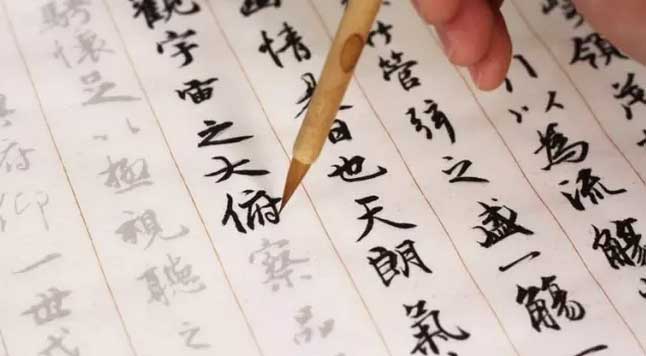 峻領茂
引以為流觴
竹管弦之盛一觴一
幽情是日也天朗氣
觀宇宙之大俯察品
騁懷足以極視聽之
俯仰一世